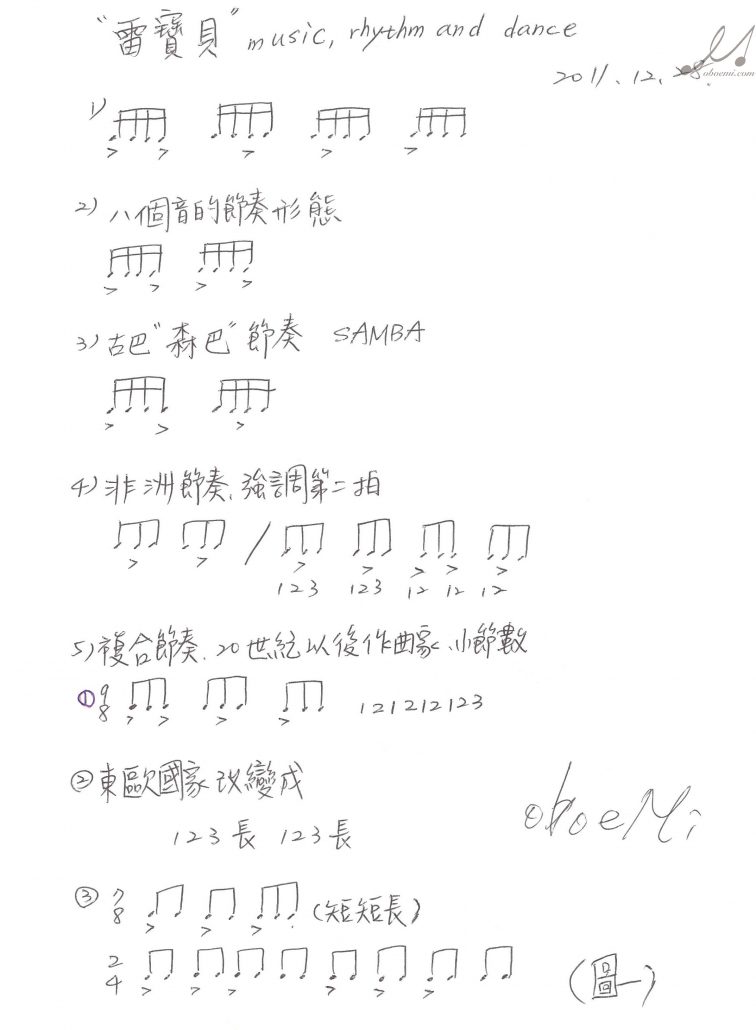 "雷寶貝" music, rhythm and dance
oboemi.com
2011.12.28.
1)
2) 八個音的節奏形態
3) 古巴"森巴"節奏 SAMBA
4) 非洲節奏、強調第二拍
/
123 123 12 12 12
5) 複合節奏、20世紀以後作曲家、小節數
① 9/8 121212123
② 東歐國家改變成
123長 123長
oboeMi
③ 7/8 (短短長)
2/4 (圖一)